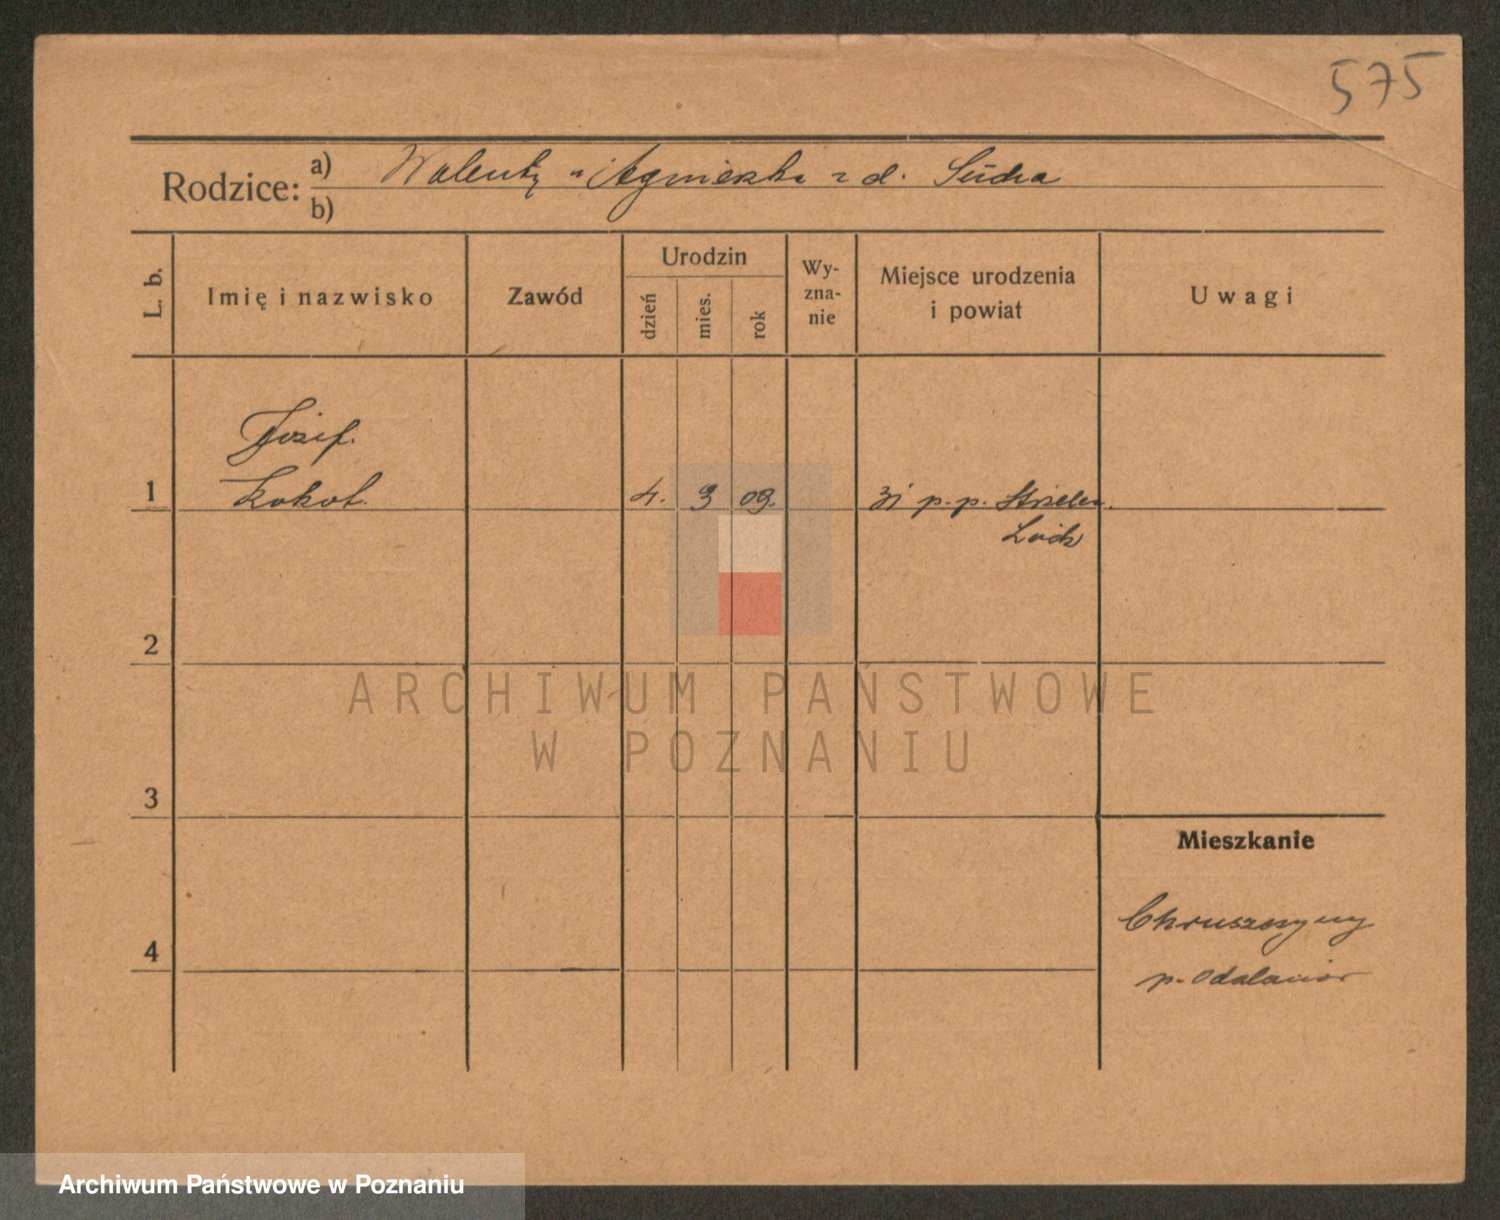 575
Rodzice: a) Walenty i Agnieszka z d. Sucha
b)
L. b.
Imię i nazwisko
Zawód
Urodzin
dzień
mies.
rok
Wy-
zna-
nie
Miejsce urodzenia
i powiat
Uwagi
1
Józef
Kokot
4. 3 09.
31 p.p. Strzelec.
2
3
4
Mieszkanie
Chruszczyny
p. Odolanów
ARCHIWUM PAŃSTWOWE
W POZNANIU
Archiwum Państwowe w Poznaniu